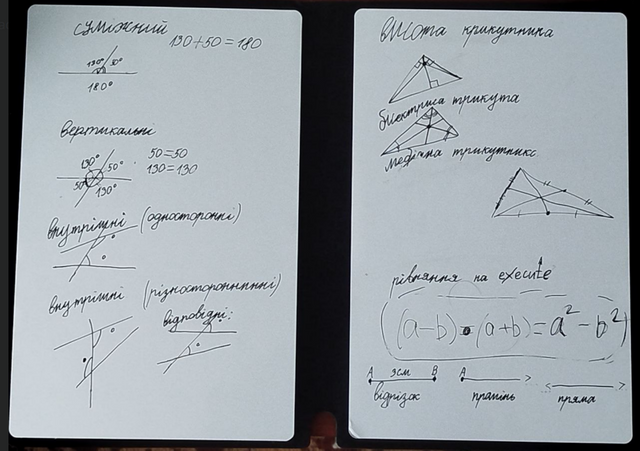 суміжний
130+50=180
130° 50°
180°
вертикальні
130° 50°
50° 130°
50=50
130=130
внутрішні (односторонні)
внутрішні (різносторонниннні)
відповідні:
висота крикутника
бісектриса трикута
медіана трикутникс
рівняння на execute
(a-b)•(a+b)=a²-b²
A 3см B
відрізок
A
промінь
пряма